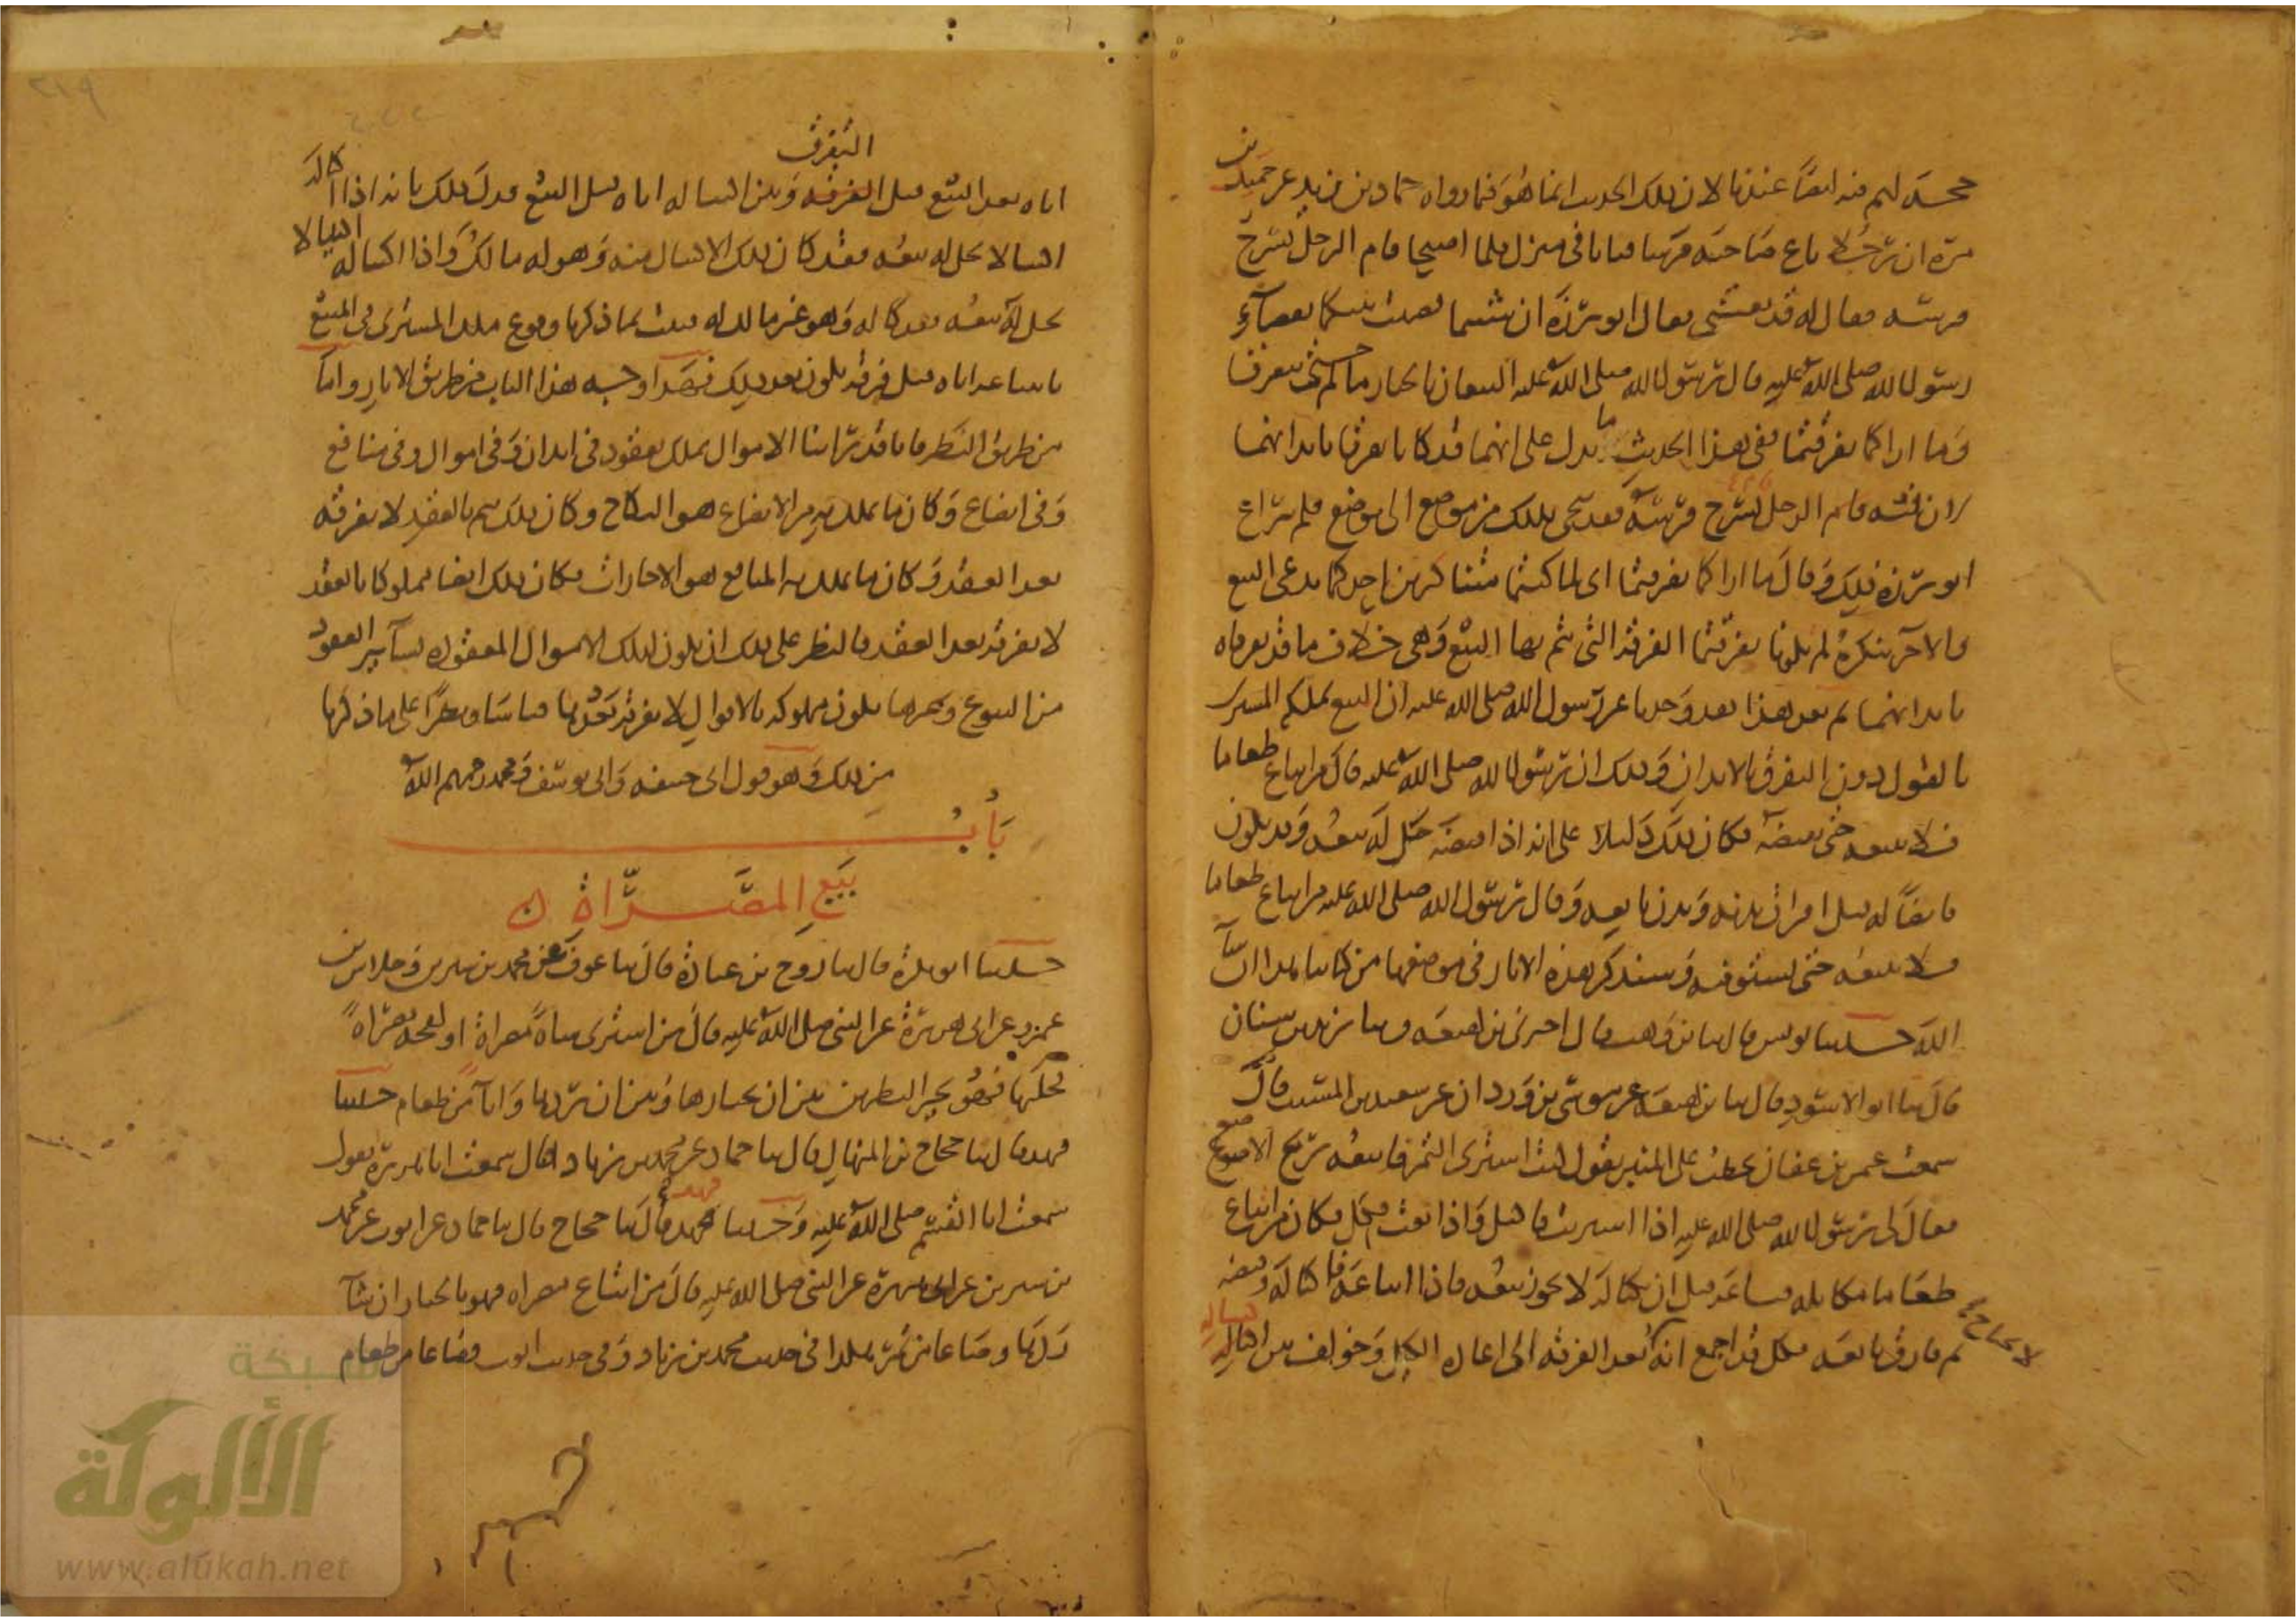 حجة لهم فيه ايضا عندنا لان ذلك الحديث انما هو فيما رواه حماد بن زيد عن جميل بن
مرة ان رجلا باع صاحبه فرسا فباتا في منزل فلما اصبحا قام الرجل يسرج
فرسه فقال له قد بعتني فقال ابو برزة ان شئتما قضيت بينكما بقضاء
رسول الله صلى الله عليه قال رسول الله صلى الله عليه البيعان بالخيار ما لم حتى يتفرقا
وما اراكما تفرقتما ففي هذا الحديث ما يدل على انهما قد كانا تفرقا بابدانهما
لان فيه قام الرجل يسرج فرسه فقد تنحى بذلك من موضع الى موضع فلم يراع
ابو برزة ذلك وقال ما اراكما تفرقتما اى لما كنتما متشاكرين احدكما يدعى البيع
والآخر ينكره لم تكونا تفرقتما الفرقة التى يتم بها البيع وهى خلاف ما قد تفرقاه
بابدانهما ثم بعد هذا فقد وجدنا عن رسول الله صلى الله عليه ان البيع يملكه المشترى
بالقول دون التفرق بالابدان وذلك ان رسول الله صلى الله عليه قال من ابتاع طعاما
فلا يبيعه حتى يقبضه فكان ذلك دليلا على انه اذا قبضه حل له بيعه وقد يكون
قابضا له قبل افتراق بدنه وبدن بايعه وقال رسول الله صلى الله عليه من ابتاع طعاما
فلا يبيعه حتى يستوفيه وسنذكر هذه الاثار في موضعها من كتابنا هذا ان شآ
الله حدثنا يونس قال ثنا بن وهب قال اخبرنى بن لهيعة وثنا يزيد بن سنان
قال ثنا ابو الاسود قال ثنا بن لهيعة عن موسى بن وردان عن سعيد بن المسيب قال
سمعت عثمن بن عفان يخطب على المنبر يقول كنت اشترى التمر فابيعه بربح الاصوع
فقال لى رسول الله صلى الله عليه اذا اشتريت فاكتل واذا بعت فكل فكان من ابتاع
طعاما مكايلة فباعه قبل ان يكتاله لا يجوز بيعه فاذا ابتاعه فاكتاله وقبضه
ثم فارق بايعه فكل قد اجمع انه لا يحتاج بعد الفرقة الى اعادة الكيل وخولف بين اكتياله
التفرق
اياه بعد البيع قبل الفرقة وبين اكتياله اياه قبل البيع فدل ذلك بانه اذا اكتاله
اكتيالا يحل له بيعه فقد كان ذلك الاكتيال منه وهو له مالك واذا اكتاله اكتيالا لا
يحل له بيعه فقد كاله وهو غير مالك له فثبت بما ذكرنا وقوع ملك المشترى في المبيع
بابتياعه اياه قبل فرقة تكون بعد ذلك فهذا وجه هذا الباب من طريق الاثار واما
من طريق النظر فانا قد راينا الاموال تملك بعقود في ابدان وفي اموال وفي منافع
وفي ابضاع وكان ما يملك به من الابضاع هو النكاح وكان ذلك يتم بالعقد لا بفرقة
بعد العقد وكان ما يملك به المنافع هو الاجارات فكان ذلك ايضا مملوكا بالعقد
لا بفرقة بعد العقد فالنظر على ذلك ان يكون كذلك الاموال المعقوده بسآير العقود
من البيوع وغيرها تكون مملوكة بالاقوال لا بفرقة بعدها قياسا ونظرا على ما ذكرنا
من ذلك وهو قول ابى حنيفه وابى يوسف ومحمد رحمهم الله
باب
بيع المصراة
حدثنا ابو بكرة قال ثنا روح بن عبادة قال ثنا عوف عن محمد بن سيرين وخلاس بن
عمرو عن ابى هريرة عن النبى صلى الله عليه قال من اشترى شاة مصراة او لقحة مصراة
فحلبها فهو بخير النظرين بين ان يختارها وبين ان يردها واناآ من طعام حدثنا
فهد قال ثنا حجاج بن المنهال قال ثنا حماد عن محمد بن زياد قال سمعت ابا هريرة يقول
سمعت ابا القسم صلى الله عليه وحدثنا فهد قال ثنا حجاج قال ثنا حماد عن ايوب عن محمد
بن سيرين عن ابى هريرة عن النبى صلى الله عليه قال من ابتاع مصراه فهو بالخيار ان شآ
ردها وصاعا من تمر هكذا في حديث محمد بن زياد وفي حديث ايوب وصاعا من طعام
شبكة
الألوكة
www.alukah.net